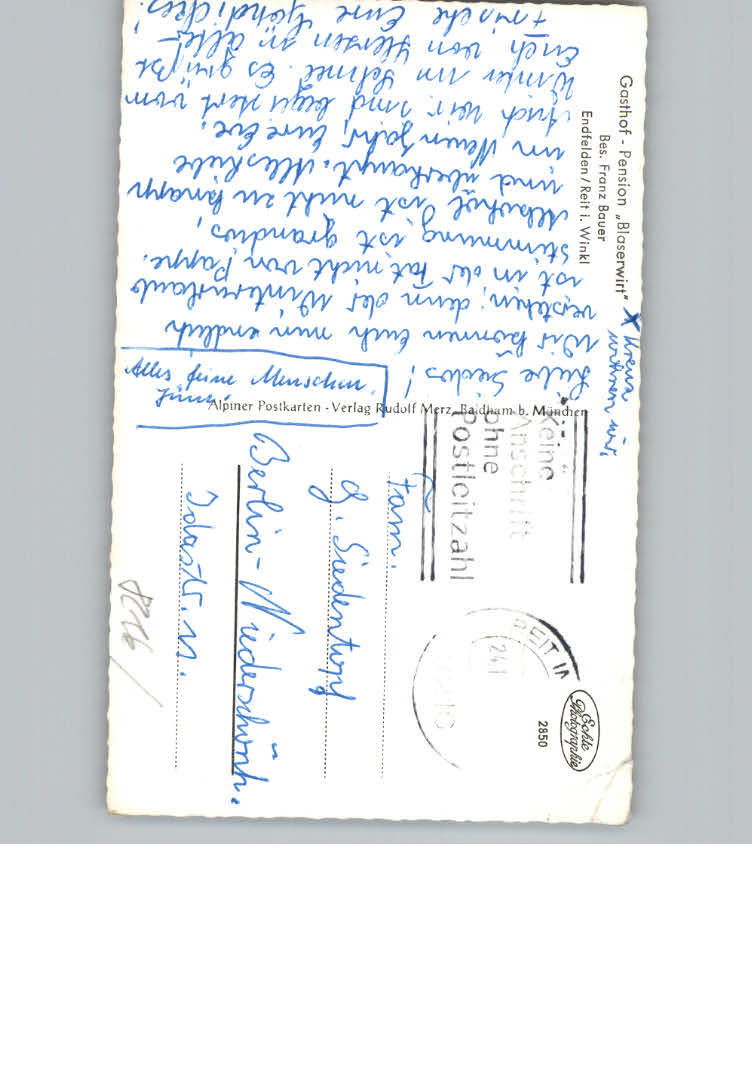 Gasthof - Pension „Blaserwirt"
Bes. Franz Bauer
Endfelden / Reit i. Winkl
X Kreuz
wohnen wir.
Liebe Siedos!
Wir können Euch nun endlich
verstehen; denn der Winterurlaub
ist in der Tat nicht von Pappe.
Stimmung ist grandios,
Alkohol ist nicht zu knapp
und überhaupt. Alles Liebe
im Neuen Jahr, Eure Eve.
Auch wir sind begeistert vom
Winter im Schnee. Es grüßt
Euch von Herzen in alter
Frische Eure
Alles feine Menschen
Alpiner Postkarten - Verlag Rudolf Merz, Baldham b. München
Keine
Anschrift
ohne
Postleitzahl
REIT IM
24.1
Echte
Photographie
2850
Fam.
G. Siedentopf
Berlin-Niederschönh.
Idastr. 11.